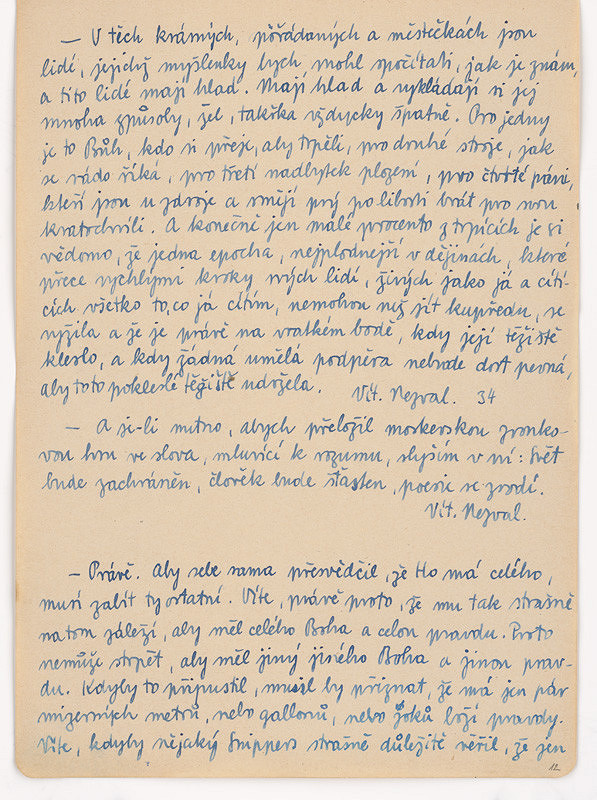 — V těch krásných, pořádaných a městečkách jsou
lidé, jejichž myšlenky bych mohl spočítati, jak je znám,
a tito lidé mají hlad. Mají hlad a vykládají si jej
mnoha způsoby, žel, takřka vždycky špatně. Pro jedny
je to Bůh, kdo si přeje, aby trpěli, pro druhé stroje, jak
se rádo říká, pro třetí nadbytek plození, pro čtvrté páni,
kteří jsou u zdroje a smějí prý po libosti brát pro svou
kratochvíli. A konečně jen malé procento z trpících je si
vědomo, že jedna epocha, nejplodnější v dějinách, které
přece rychlými kroky svých lidí, živých jako já a cítí-
cích všetko to, co já cítím, nemohou než jít kupředu, se
vyžila a že je právě na vratkém bodě, kdy její těžiště
kleslo, a kdy žádná umělá podpěra nebude dost pevná,
aby toto pokleslé těžiště udržela. Vít. Nezval. 34
— A je-li nutno, abych přeložil moskevskou zvonko-
vou hru ve slova, mluvící k rozumu, slyším v ní: Svět
bude zachráněn, člověk bude šťasten, poesie se zrodí.
Vít. Nezval.
— Právě. Aby sebe sama přesvědčil, že Ho má celého,
musí zabít ty ostatní. Víte, právě proto, že mu tak strašně
na tom záleží, aby měl celého Boha a celou pravdu. Proto
nemůže strpět, aby měl jiný jiného Boha a jinou prav-
du. Kdyby to připustil, musil by přiznat, že má jen pár
mizerných metrů, nebo gallonů, nebo žoků boží pravdy.
Víte, kdyby nějaký Snippers strašně důležitě věřil, že jen
12